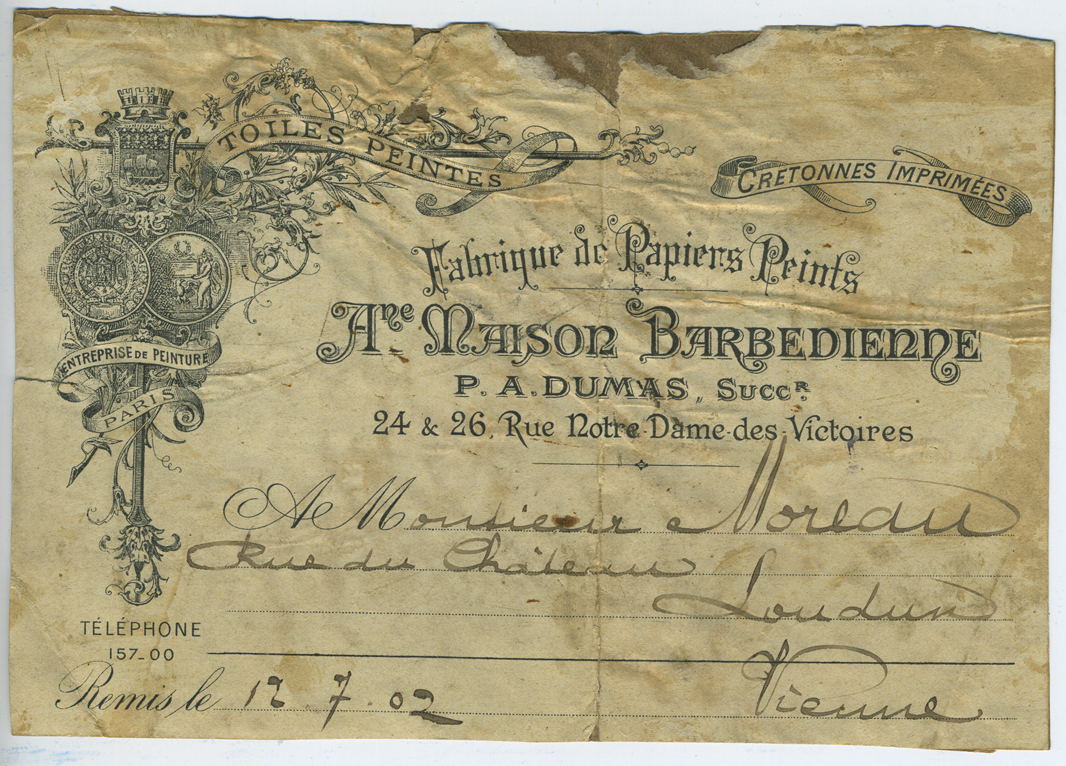 TOILES PEINTES
CRETONNES IMPRIMÉES
Fabrique de Papiers Peints
Ane MAISON BARBEDIENNE
P. A. DUMAS, SUCCR.
24 & 26, Rue Notre-Dame-des-Victoires
ENTREPRISE DE PEINTURE
PARIS
A Monsieur Moreau
Rue du Château
Loudun
TÉLÉPHONE
157-00
Vienne
Remis le 12.7.02